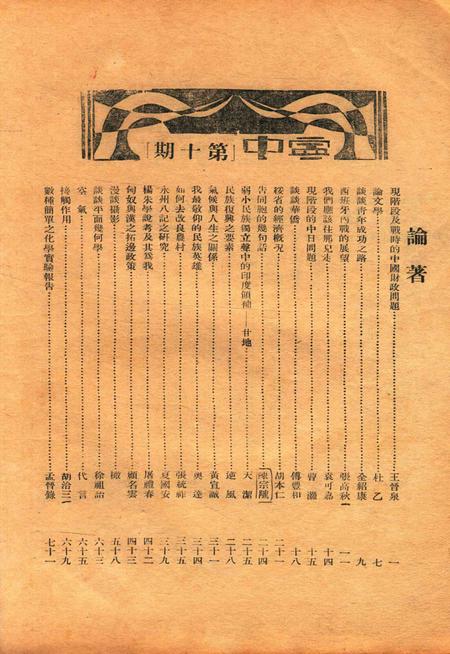 寧中［第十期］
論著
現階段及戰時的中國財政問題 王晉泉 一
論文學 杜乙 七
談談青年成功之路 全紹康 九
西班牙內戰的展望 張高秋 一一
我們應該往那兒走 袁可嘉 十四
現階段的中日問題 曾灝 十五
談談華僑 傅豐和 十八
綏省的經濟概況 胡本仁 二十一
告同胞的幾句話 陳宗驥 二十四
弱小民族獨立聲中的印度領袖——甘地 天潔 二十五
民族復興之要素 逆風 二十八
氣候與人生之關係 黃宜誠 三十一
我最敬仰的民族英雄 奧達 三十四
如何去改良農村 張統祚 三十五
永州八記之研究 夏國安 三十九
楊朱學說考及其為我 屠禮春 四十二
匈奴與漢之拓邊政策 顧名雲 四十三
漫談攝影 橄 五十八
談談平面幾何學 徐祖詒 六十三
空氣 代言 六十五
接觸作用 胡治三 六十九
數種簡單之化學實驗報告 孟晉錄 七十一